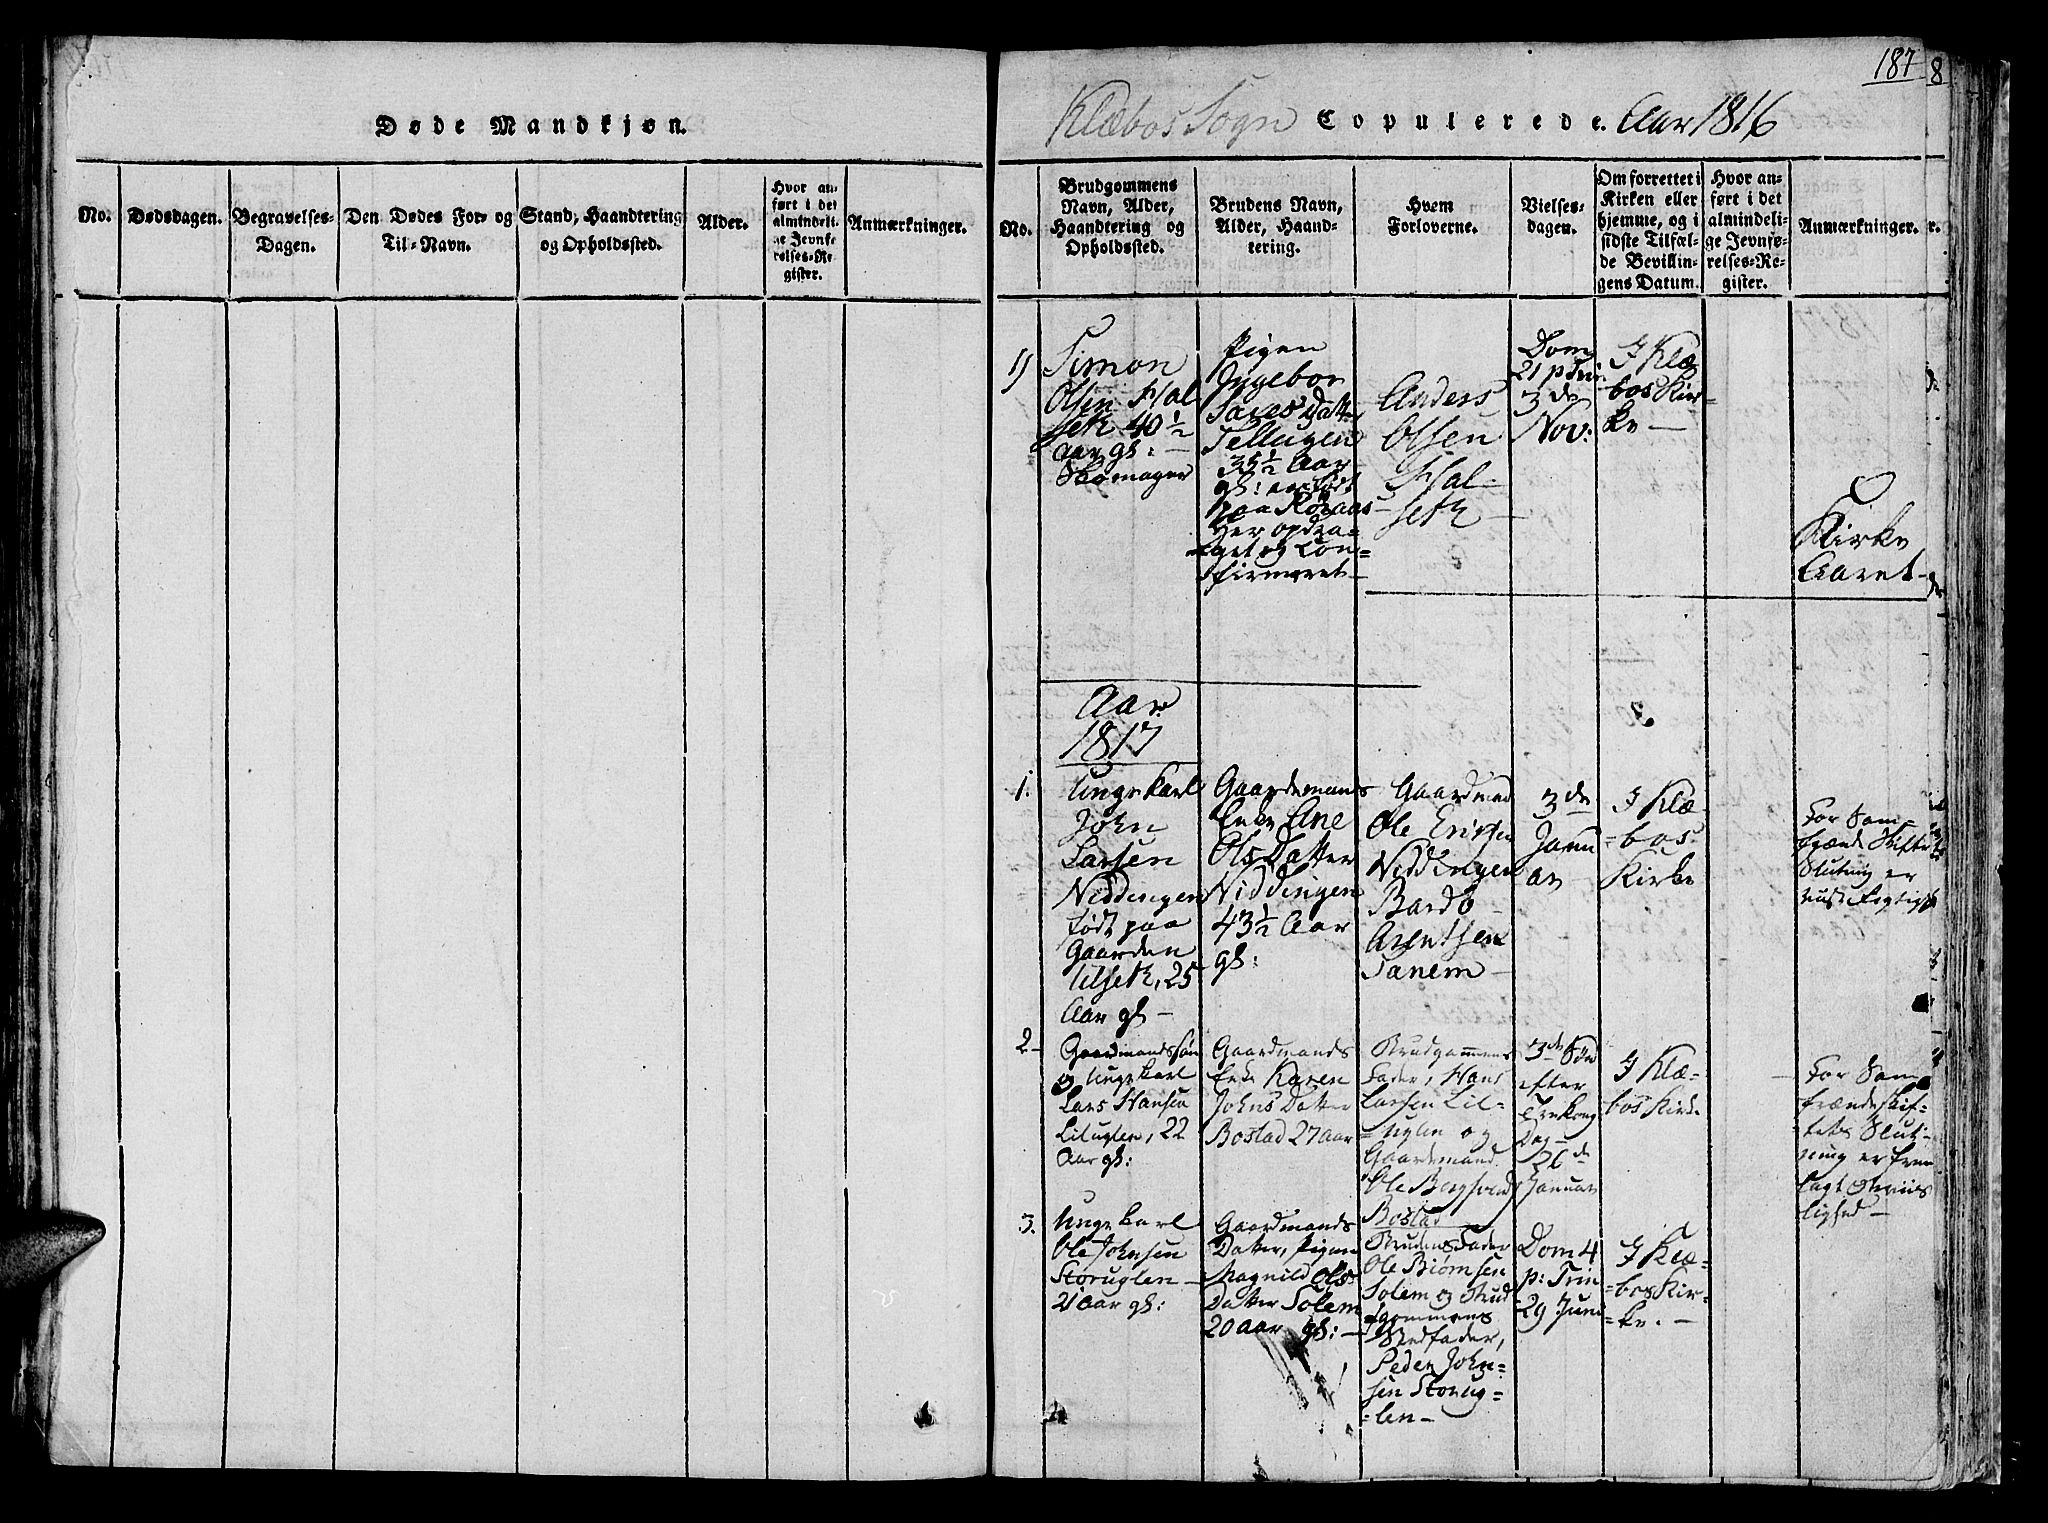 Døde Mandkjøn.
No.
Dødsdagen.
Begravelses-
Dagen.
Den Dødes For- og
Til-Navn.
Stand, Haandtering
og Opholdssted.
Alder.
Hvor an-
ført i det
almindeli-
ge Jevnfø-
relses-Re-
gister.
Anmærkninger.
187
8
Klæbos Sogn Copulerede. Aar 1816
No.
Brudgommens
Navn, Alder,
Haandtering og
Opholdssted.
Brudens Navn,
Alder, Haand-
tering.
Hvem
Forloverne.
Vielses-
dagen.
Om forrettet i
Kirken eller
hjemme, og i
sidste Tilfæl-
de Bevillin-
gens Datum.
Hvor an-
ført i det
almindeli-
ge Jevnfø-
relses-Re-
gister.
Anmærkninger.
r.
1)
Simon
Olsen Hal
seth 40 ½
Aar gl: —
Skomager
Pigen
Ingebor
Datter
Tellugen
35 ½ Aar
gl: er født
paa Røraas
Her opdra-
get og Con-
firmeret —
Anders
Olsen
Hal-
seth —
Dom
21 p Trin
3de
Nov:
I Klæ
bos Kir-
ke —
Kirke
Aaret
Aar
1817
1.
Ungekarl
John
Larsen
Niddingen
født paa
Gaarden
Ulseth, 25
Aar gl —
Gaardmands
Enke Ane
Ols Datter
Niddingen
43 ½ Aar
gl:
Gaardmand
Ole Erichsen
Niddingen
Bardo
Arentsen
Tanem —
3de
Janu
ar —
I Klæ-
bos
Kirke
For Sam-
frænde Skiftets
Slutning er
2
Gaardmandssøn
og Ungekarl
Lars Hansen
Liluglen, 22
Aar gl:
Gaardmands
Enke Karen
Johns Datter
Bostad 27 Aar
Brudgommens
Fader, Hans
Larsen Lil-
uglen og
Gaardmand
Ole Bergsvends
Bostad
3de Søn
efter
Dag —
26de
Januar
I Klæ-
bos Kirke
For Sam
frændeskif-
tets Slut-
ning er frem
lagt
lighed —
3.
Ungekarl
Ole Johnsen
Storuglen —
21 Aar gl:
Gaardmands
Datter, Pigen
Magnild Ols
Datter Solem
20 Aar gl: —
Brudens Fader
Ole Biørnsen
Solem og Brud
gommens
Stedfader,
Peder John-
sen Storug-
len —
Dom 4
p: Trin
29 Juni
I Klæ-
bos Kir-
ke. —